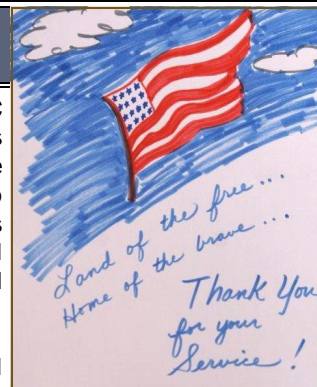 Land of the free...
Home of the brave...
Thank You
for your
Service!